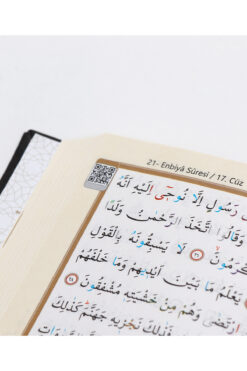 21- Enbiyâ Sûresi / 17. Cüz
رَسُولٍ اِلَّا نُوحٓى اِلَيْهِ اَنَّهُ
وَقَالُوا اتَّخَذَ الرَّحْمٰنُ وَلَدًا
لَا يَسْبِقُونَهُ بِالْقَوْلِ
يَعْلَمُ مَا بَيْنَ اَيْدٖيهِمْ وَمَا خَلْفَهُمْ
ارْتَضٰى وَهُمْ مِنْ خَشْيَتِهٖ مُشْفِقُونَ
فَذٰلِكَ نَجْزٖيهِ جَهَنَّمَ كَذٰلِكَ